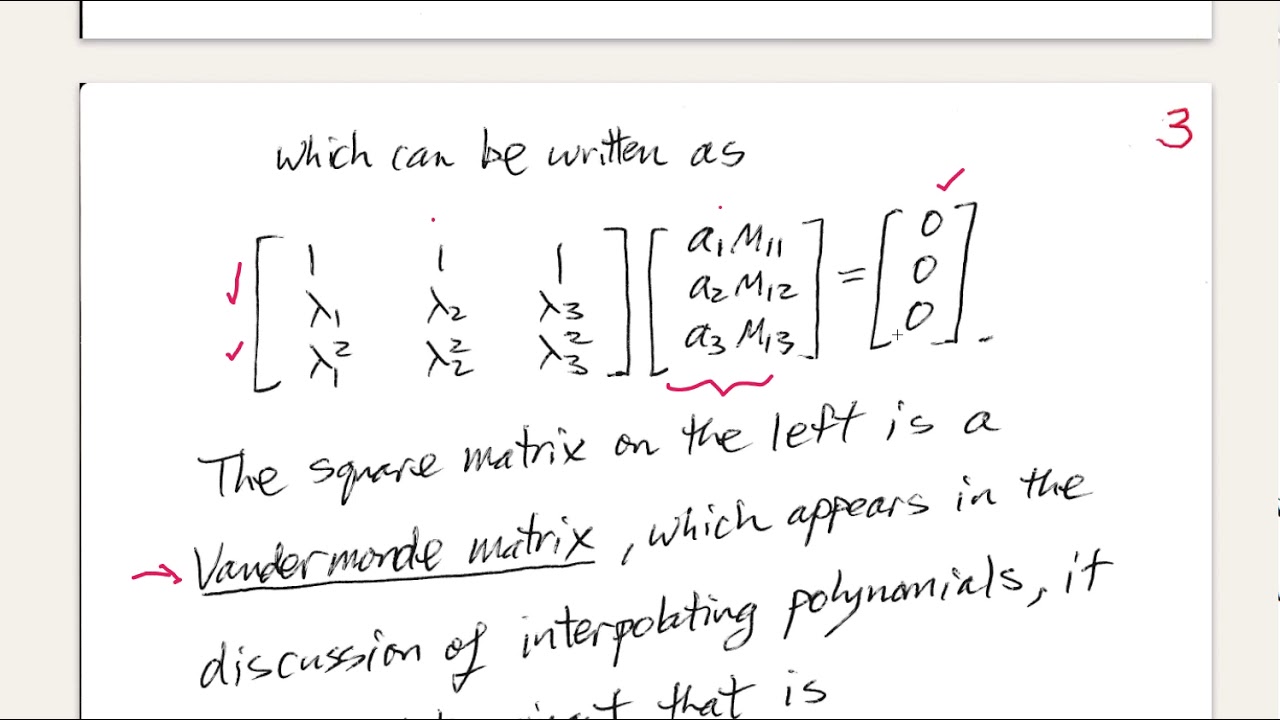 3
which can be written as
[1 1 1; λ₁ λ₂ λ₃; λ₁² λ₂² λ₃²] [a₁M₁₁; a₂M₁₂; a₃M₁₃] = [0; 0; 0].
The square matrix on the left is a
→ Vandermonde matrix, which appears in the
discussion of interpolating polynomials, it
that is